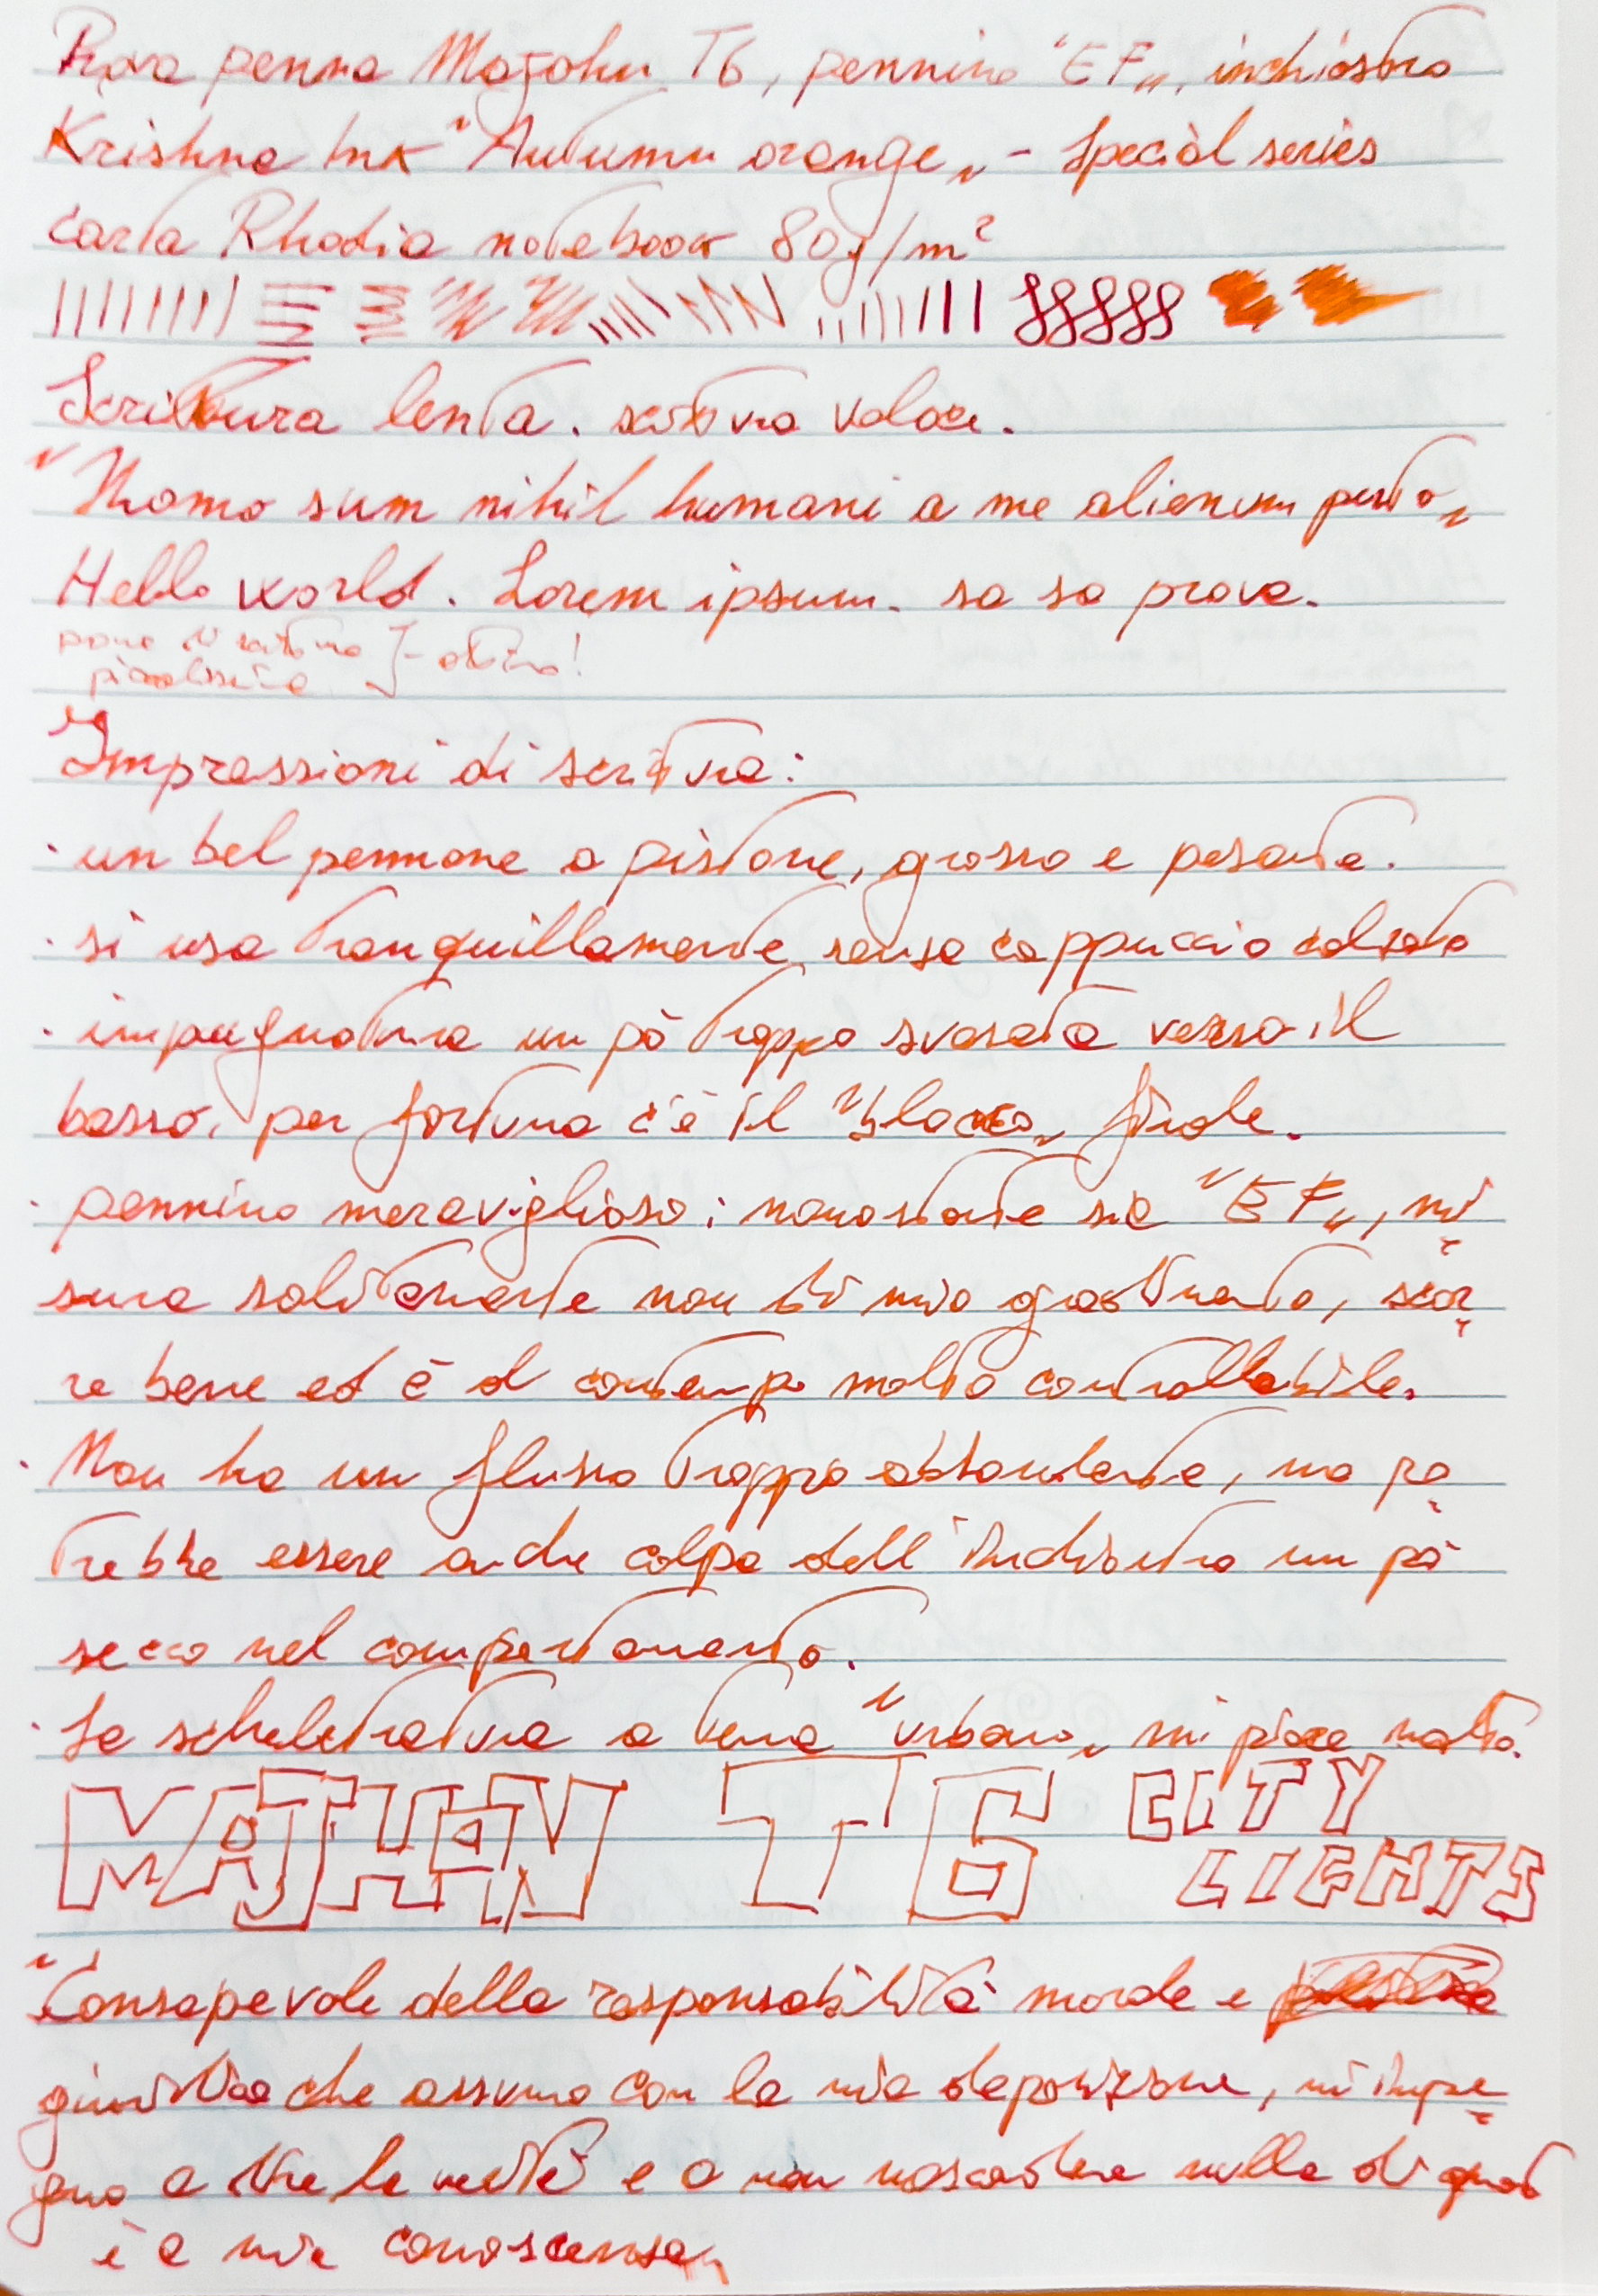 Prova penna Majohn T6, pennino "EF", inchiostro
Krishna Ink "Autumn orange" - Special series
carta Rhodia notebook 80g/m²
Scrittura lenta. scrittura veloce.
"Homo sum nihil humani a me alienum puto"
Hello world. Lorem ipsum. sa sa prova.
prova di scrittura } - ottimo!
piccolissima
Impressioni di scrittura:
· un bel pennone a pistone, grosso e pesante.
· si usa tranquillamente senza cappuccio calzato
· impugnatura un pò troppo svasata verso il
basso, per fortuna c'è il "blocco" finale.
· pennino meraviglioso: nonostante sia "EF", mi
sura solitamente non di mio gradimento, scor
re bene ed è al contempo molto controllabile.
· Non ha un flusso troppo abbondante, ma po
trebbe essere anche colpa dell'inchiostro un pò
secco nel comportamento.
· La scheletratura a tema "urbano" mi piace molto.
MAJHON T6 CITY
LIGHTS
"Consapevole della responsabilità morale e
giuridica che assumo con la mia deposizione, mi impe
gno a dire la verità e a non nascondere nulla di quanto
è a mia conoscenza"